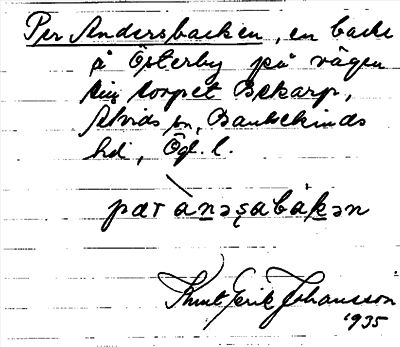 Per Andersbacken, en backe
å Österby på vägen
till torpet Bekarp,
Alvids sn, Bankekinds
hd, Ög. l.
pær anəsabakən
Knut Erik Johansson
1935